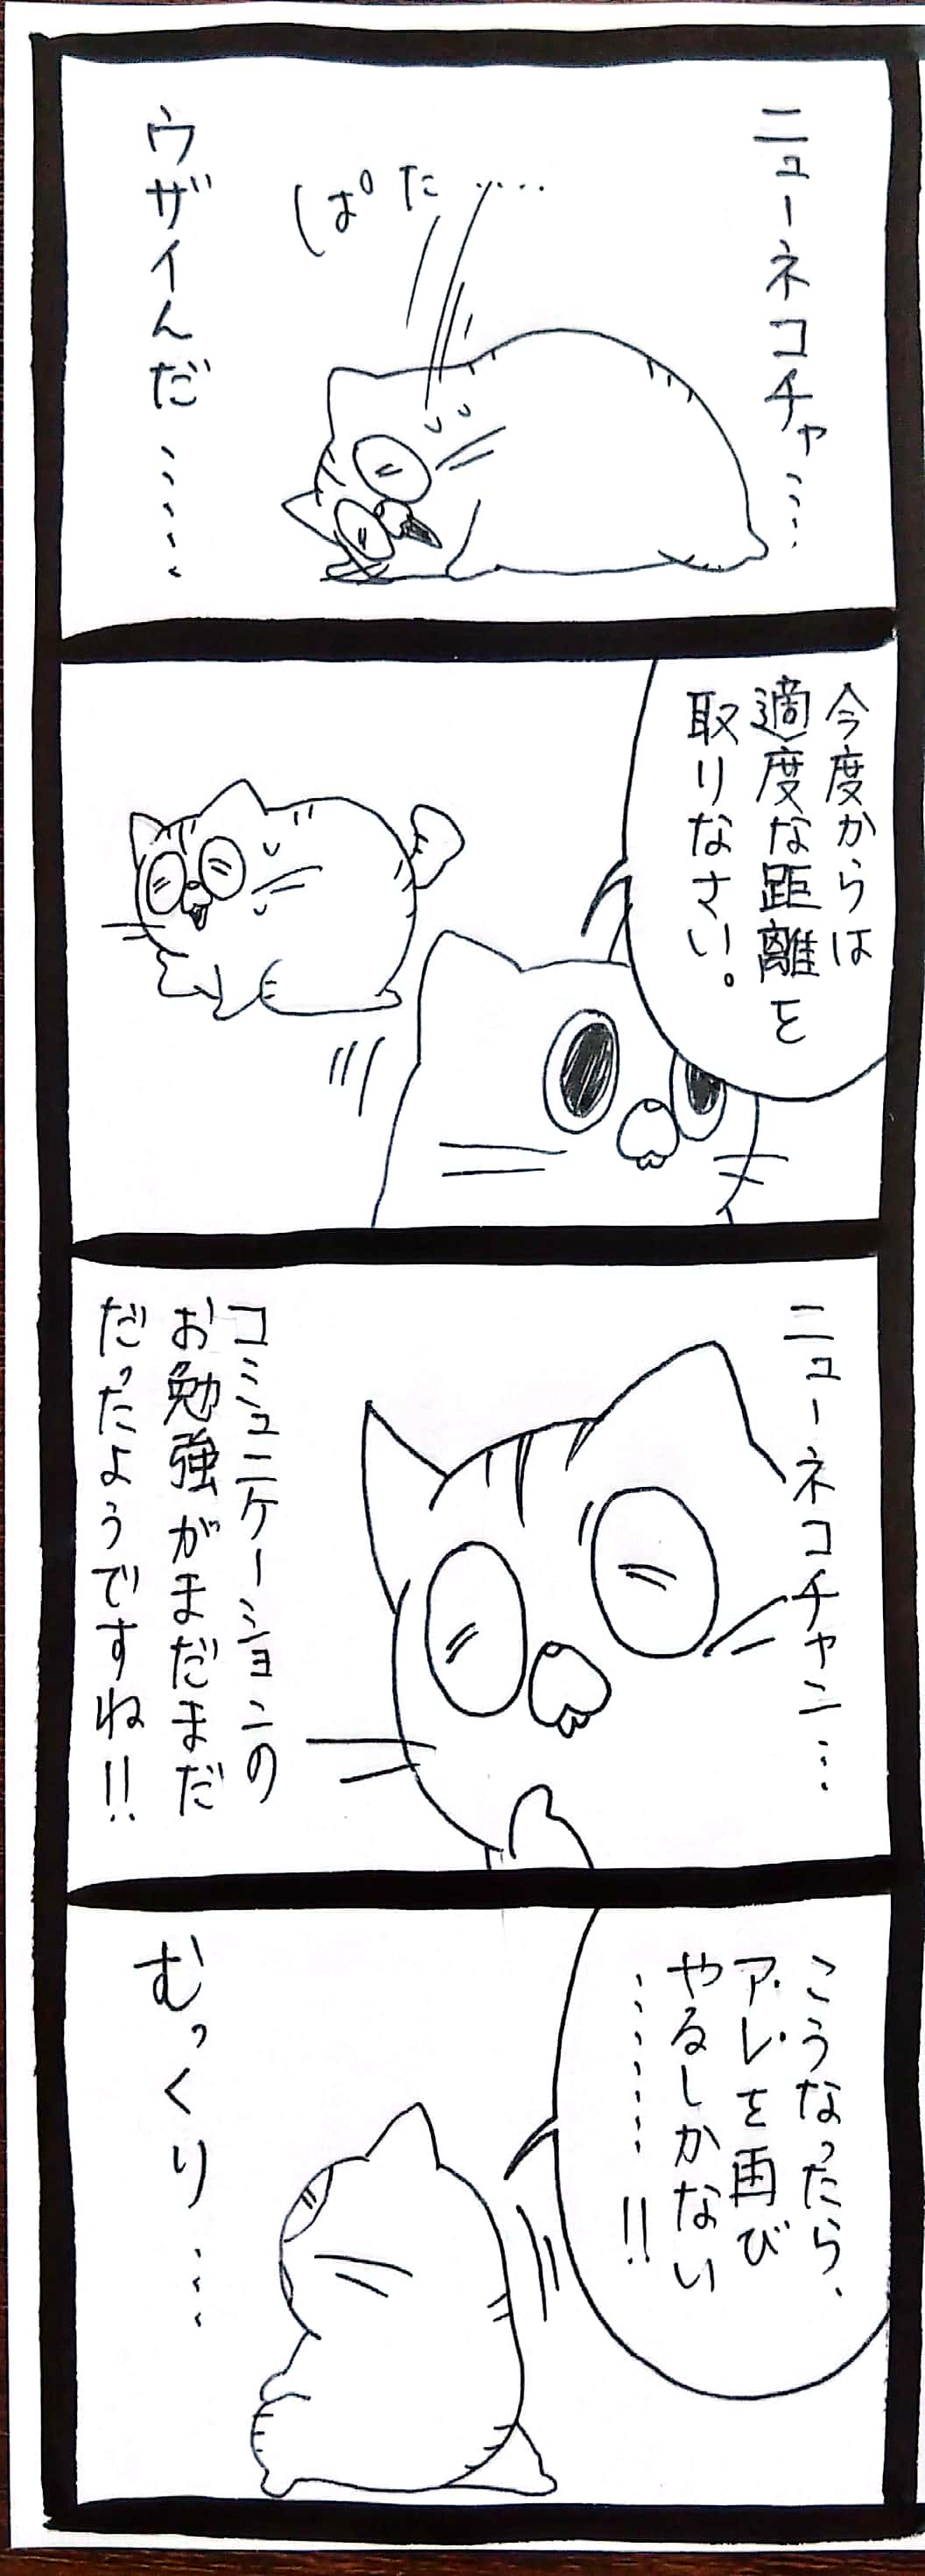 ニューネコチャ…
ぱた……
ウザイんだ……
今度からは
適度な距離を
取りなさい。
ニューネコチャン…
コミュニケーションの
お勉強がまだまだ
だったようですね!!
こうなったら、
アレを再び
やるしかない
………!!
むっくり…